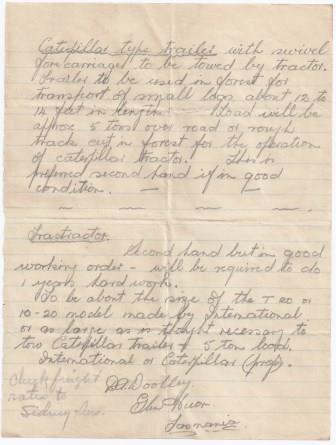 Caterpillar type trailer with swivel
forecarriage to be towed by tractor.
Trailer to be used in forest for
transport of small logs about 12 to
14 feet in length. Load will be
approx 5 tons over road or rough
track cut in forest for the operation
of caterpillar tractor. This is
preferred second hand if in good
condition. — —
Tractractor.
Second hand but in good
working order - will be required to do
1 years hard work.
To be about the size of the T 20 or
10-20 model made by International
or as large as is thought necessary to
tow Caterpillar trailer & 5 ton load.
International or Caterpillar (pref).
Check freight
rates to
Sidney
D.A. Doolley.
Glen Huon
Tasmania